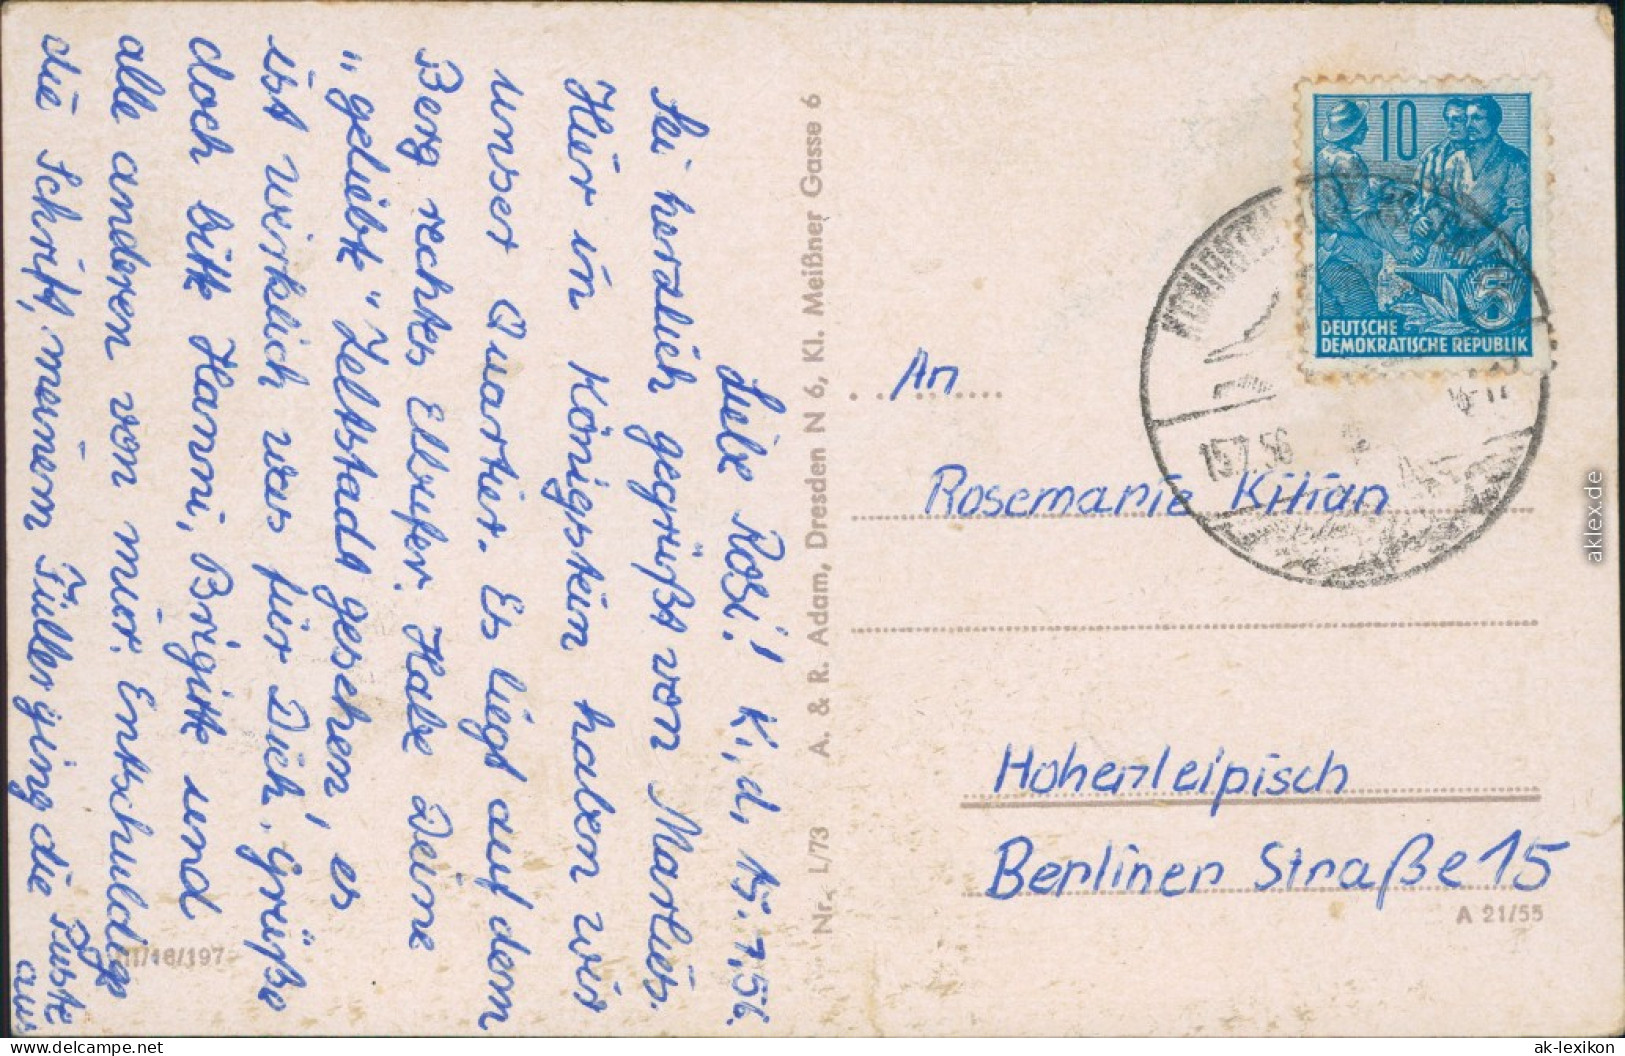 Liebe Rosi! K, d, 15.7.56.
Sei herzlich gegrüßt von Marlies.
Hier in Königstein haben wir
unser Quartier. Es liegt auf dem
Berg rechtes Elbufer. Habe Deine
"geliebte" Zeltstadt gesehen, es
ist wirklich was für Dich. Grüße
doch bitte Hanni, Brigitte und
alle anderen von mir. Entschuldige
die Schrift, meinem Füller ging die Puste
aus
III/18/197
Nr. L/73 A. & R. Adam, Dresden N 6, Kl. Meißner Gasse 6
10
5
DEUTSCHE
DEMOKRATISCHE REPUBLIK
15.7.56
An
Rosemarie Kilian
Hohenleipisch
Berliner Straße 15
A 21/55
aklex.de
www.delcampe.net
ak-lexikon